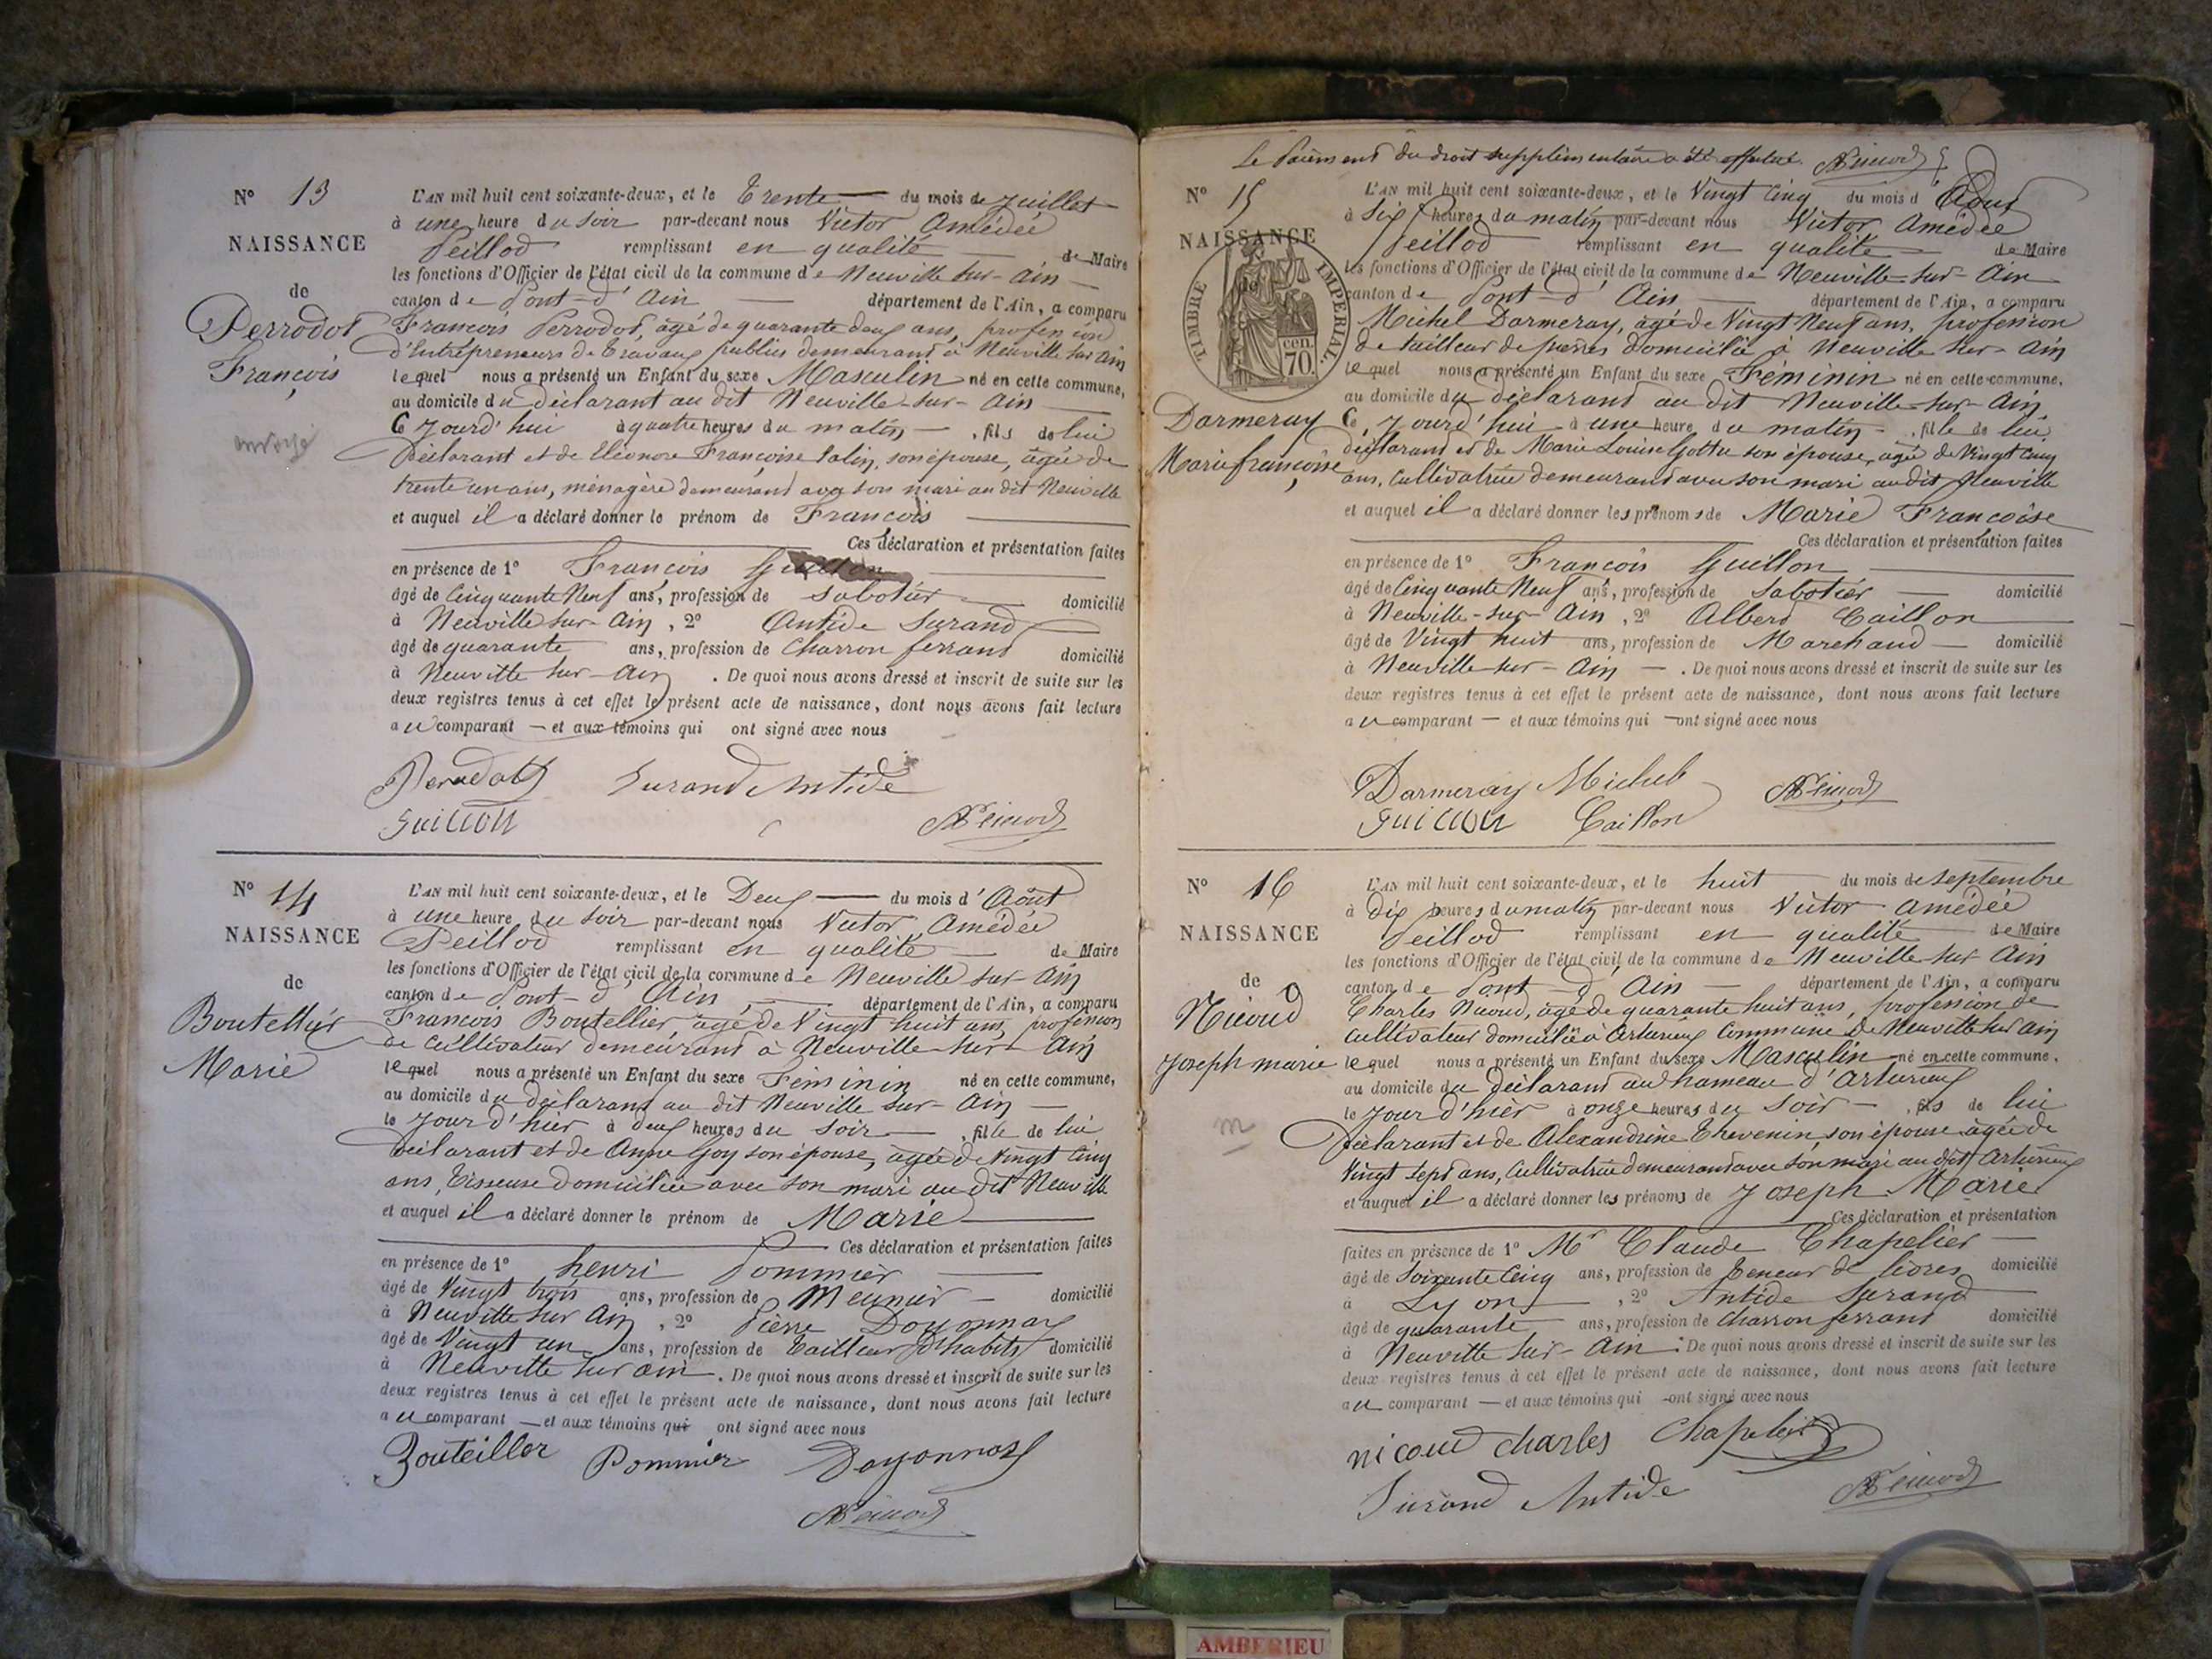 N° 13
NAISSANCE
de
Perrodot
François
L'AN mil huit cent soixante-deux, et le Trente du mois de Juillet
à une heure du soir par-devant nous Victor Amédée
Peillod remplissant en qualité de Maire
les fonctions d'Officier de l'état civil de la commune de Neuville sur-Ain
canton de Pont-d'Ain département de l'Ain, a comparu
François Perrodot, âgé de quarante deux ans, profession
d'Entrepreneurs de Travaux publics demeurant à Neuville sur Ain
lequel nous a présenté un Enfant du sexe Masculin né en cette commune,
au domicile du déclarant au dit Neuville-sur-Ain
Ce Jourd'hui à quatre heures du matin, fils de lui
Déclarant et de Eléonore Françoise Salin, son épouse, âgée de
trente un ans, ménagère demeurant avec son mari au dit Neuville
et auquel il a déclaré donner le prénom de François
Ces déclaration et présentation faites
en présence de 1° François Guillon
âgé de Cinquante Neuf ans, profession de Sabotier domicilié
à Neuville sur-Ain, 2° Antide Durand
âgé de quarante ans, profession de Charron ferrant domicilié
à Neuville sur-Ain. De quoi nous avons dressé et inscrit de suite sur les
deux registres tenus à cet effet le présent acte de naissance, dont nous avons fait lecture
au comparant — et aux témoins qui ont signé avec nous
Durand Antide
Guillon
N° 14
NAISSANCE
de
Boutellier
Marie
L'AN mil huit cent soixante-deux, et le Deux du mois d'Août
à une heure du soir par-devant nous Victor Amédée
Peillod remplissant en qualité de Maire
les fonctions d'Officier de l'état civil de la commune de Neuville sur-Ain
canton de Pont-d'Ain, département de l'Ain, a comparu
François Boutellier, âgé de Vingt huit ans, profession
de cultivateur demeurant à Neuville sur Ain
lequel nous a présenté un Enfant du sexe Féminin né en cette commune,
au domicile du déclarant au dit Neuville sur-Ain
le Jour d'hier à deux heures du soir, fille de lui
déclarant et de Anne Goy son épouse, âgée de Vingt Cinq
ans, Tisseuse domiciliée avec son mari au dit Neuville
et auquel il a déclaré donner le prénom de Marie
Ces déclaration et présentation faites
en présence de 1° henri Pommier
âgé de Vingt trois ans, profession de Meunier domicilié
à Neuville sur Ain, 2° Pierre Doyonnax
âgé de Vingt un ans, profession de Tailleur d'habits domicilié
à Neuville sur ain. De quoi nous avons dressé et inscrit de suite sur les
deux registres tenus à cet effet le présent acte de naissance, dont nous avons fait lecture
au comparant — et aux témoins qui ont signé avec nous
Bouteiller Pommier Doyonnax
Le Paiement du droit supplémentaire a été effectué.
N° 15
NAISSANCE
TIMBRE IMPERIAL
70 cen.
Darmeray
Marie françoise
L'AN mil huit cent soixante-deux, et le Vingt Cinq du mois d'Aout
à Six heures du matin par-devant nous Victor Amédée
Peillod remplissant en qualité de Maire
les fonctions d'Officier de l'état civil de la commune de Neuville-sur-Ain
canton de Pont-d'Ain département de l'Ain, a comparu
Michel Darmeray, âgé de Vingt Neuf ans, profession
de tailleur de pierres domicilié à Neuville sur-Ain
lequel nous a présenté un Enfant du sexe Féminin né en cette commune,
au domicile du déclarant au dit Neuville-sur-Ain
Ce Jourd'hui à une heure du matin, fille de lui
déclarant et de Marie Louise Gottu son épouse, agée de Vingt Cinq
ans, Cultivatrice demeurant avec son mari au dit Neuville
et auquel il a déclaré donner les prénoms de Marie Françoise
Ces déclaration et présentation faites
en présence de 1° François Guillon
âgé de Cinquante Neuf ans, profession de Sabotier domicilié
à Neuville-sur-Ain, 2° Albert Caillon
âgé de Vingt huit ans, profession de Marchand domicilié
à Neuville sur-Ain. De quoi nous avons dressé et inscrit de suite sur les
deux registres tenus à cet effet le présent acte de naissance, dont nous avons fait lecture
au comparant — et aux témoins qui ont signé avec nous
Darmeray Michel
Guillon Caillon
N° 16
NAISSANCE
de
Nicoud
Joseph marie
m
L'AN mil huit cent soixante-deux, et le huit du mois de septembre
à Dix heures du matin par-devant nous Victor Amédée
Peillod remplissant en qualité de Maire
les fonctions d'Officier de l'état civil de la commune de Neuville sur Ain
canton de Pont-d'Ain département de l'Ain, a comparu
Charles Nicoud, âgé de quarante huit ans, profession de
cultivateur domicilié à Arturieux Commune de Neuville sur Ain
lequel nous a présenté un Enfant du sexe Masculin né en cette commune,
au domicile du déclarant au hameau d'Arturieux
le Jour d'hier à onze heures du soir, fils de lui
Déclarant et de Alexandrine Thevenin, son épouse âgée de
Vingt sept ans, Cultivatrice demeurant avec son mari au dit Arturieux
et auquel il a déclaré donner les prénoms de Joseph Marie
Ces déclaration et présentation
faites en présence de 1° Mr Claude Chapelier
âgé de Soixante Cinq ans, profession de Teneur de livres domicilié
à Lyon, 2° Antide Durand
âgé de quarante ans, profession de Charron ferrant domicilié
à Neuville sur-Ain. De quoi nous avons dressé et inscrit de suite sur les
deux registres tenus à cet effet le présent acte de naissance, dont nous avons fait lecture
au comparant — et aux témoins qui ont signé avec nous
nicoud charles Chapelier
Durand Antide
AMBERIEU